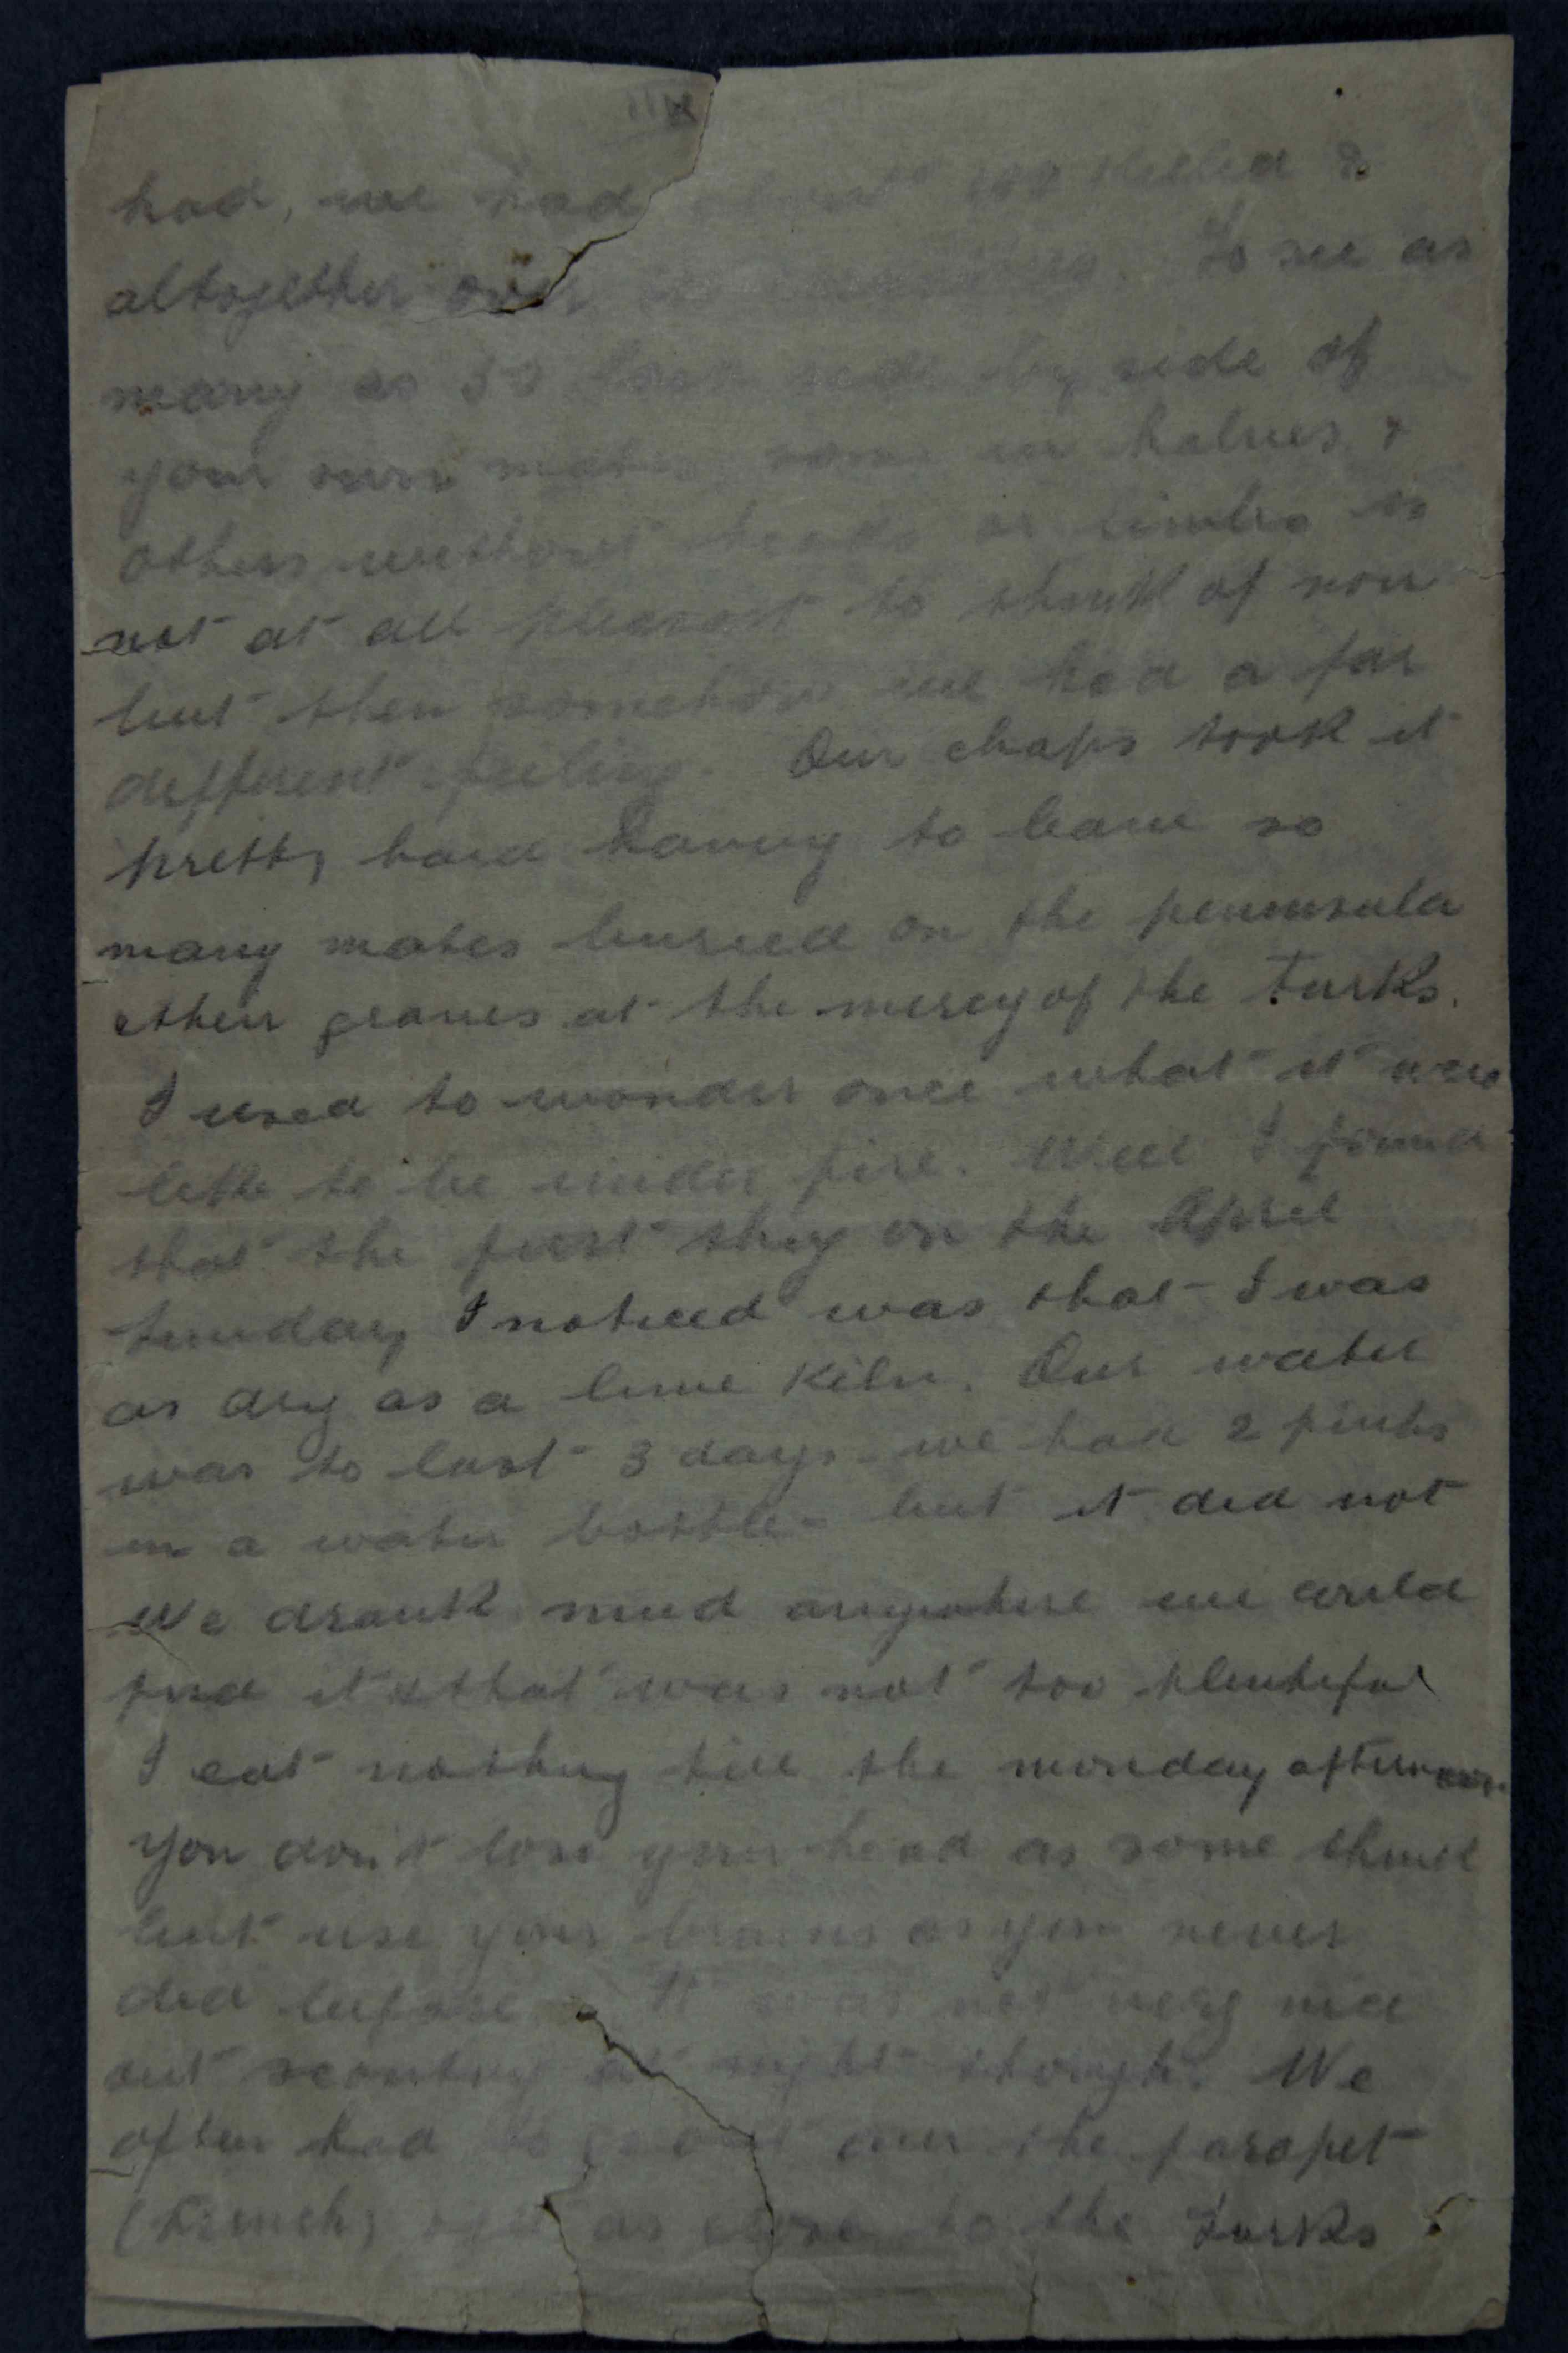 had, we had about killed &
altogether over To see as
many as 50 side by side of
your own mates some in halves &
others without heads or limbs is
not at all pleasant to think of now
but then somehow we had a far
different feeling. Our chaps took it
pretty hard having to leave so
many mates buried on the peninsula
& their graves at the mercy of the Turks.
I used to wonder once what it was
like to be under fire. Well I found
that the first thing on the April
Sunday I noticed was that I was
as dry as a lime kiln. Our water
was to last 3 days - we had 2 pints
in a water bottle - but it did not
We drank mud anywhere we could
find it & that was not too plentiful
I eat nothing till the monday afternoon.
You don't lose your head as some think
but use your brains as you never
did before. It was not very nice
out scouting at night though. We
often had to go out over the parapet
(trench) as close to the Turks